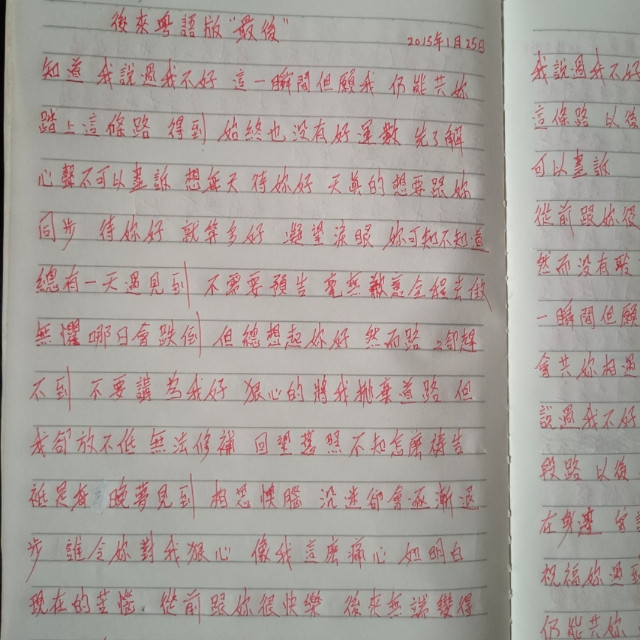 後來粵語版“最後”
2015年1月25日
知道 我說過我不好 這一瞬間但願我 仍能共妳
踏上這條路 得到 始終也沒有好運數 先了解
心聲不可以盡訴 想每天待妳好 天真的想要跟妳
同步 待你好 就算多好 凝望淚眼 妳可知不知道
總有一天遇見到 不需要預告 毫無歉意全程去做
無懼哪日會跌倒 但總想起妳好 然而路 卻趕
不到 不要講 為我好 狠心的將我拋棄道路 但
我卻放不低 無法修補 回望舊照 不知怎麼禱告
祇是每晚夢見到 相思懊惱 沿途卻會逐漸退
步 誰令妳對我狠心 像我這麼痛心 如明白
現在的苦惱 從前跟妳很快樂 後來無謂變得
我說過我不好
這條路 以後
可以盡訴
從前跟妳很
然而沒有
一瞬間但願
會共妳相遇
說過我不好
段路 以後
在
祝福妳遇到
仍能共妳